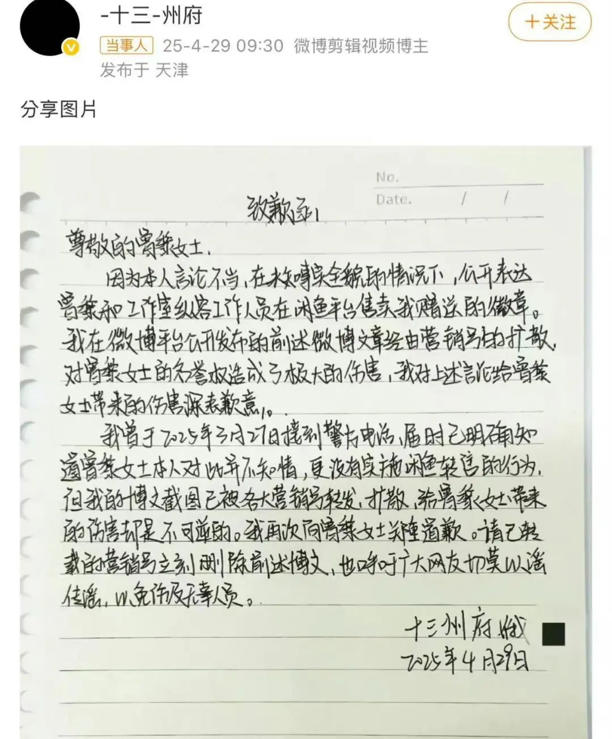 -十三-州府
+关注
当事人 25-4-29 09:30 微博剪辑视频博主
发布于 天津
分享图片
No.
Date. / /
致歉函
尊敬的曾黎女士:
因为本人言论不当,在未实全貌的情况下,公开表达
曾黎和工作室纵容工作人员在闲鱼平台售卖我赠送的徽章。
我在微博平台公开发布的前述微博文章经由营销号的扩散,
对曾黎女士的名誉权造成了极大的伤害,我对上述言论给曾黎
女士带来的伤害深表歉意。
我曾于2025年3月27日接到警方电话,届时已明确知
道曾黎女士本人对此并不知情,更没有实施闲鱼转售的行为,
但我的博文截图已被各大营销号转发、扩散,给曾黎女士带来
的伤害却是不可逆的。我再次向曾黎女士郑重道歉。请已转
载的营销号立刻删除前述博文,也呼吁广大网友切莫以谣
传谣,以免伤及无辜人员。
十三州府
2025年4月29日